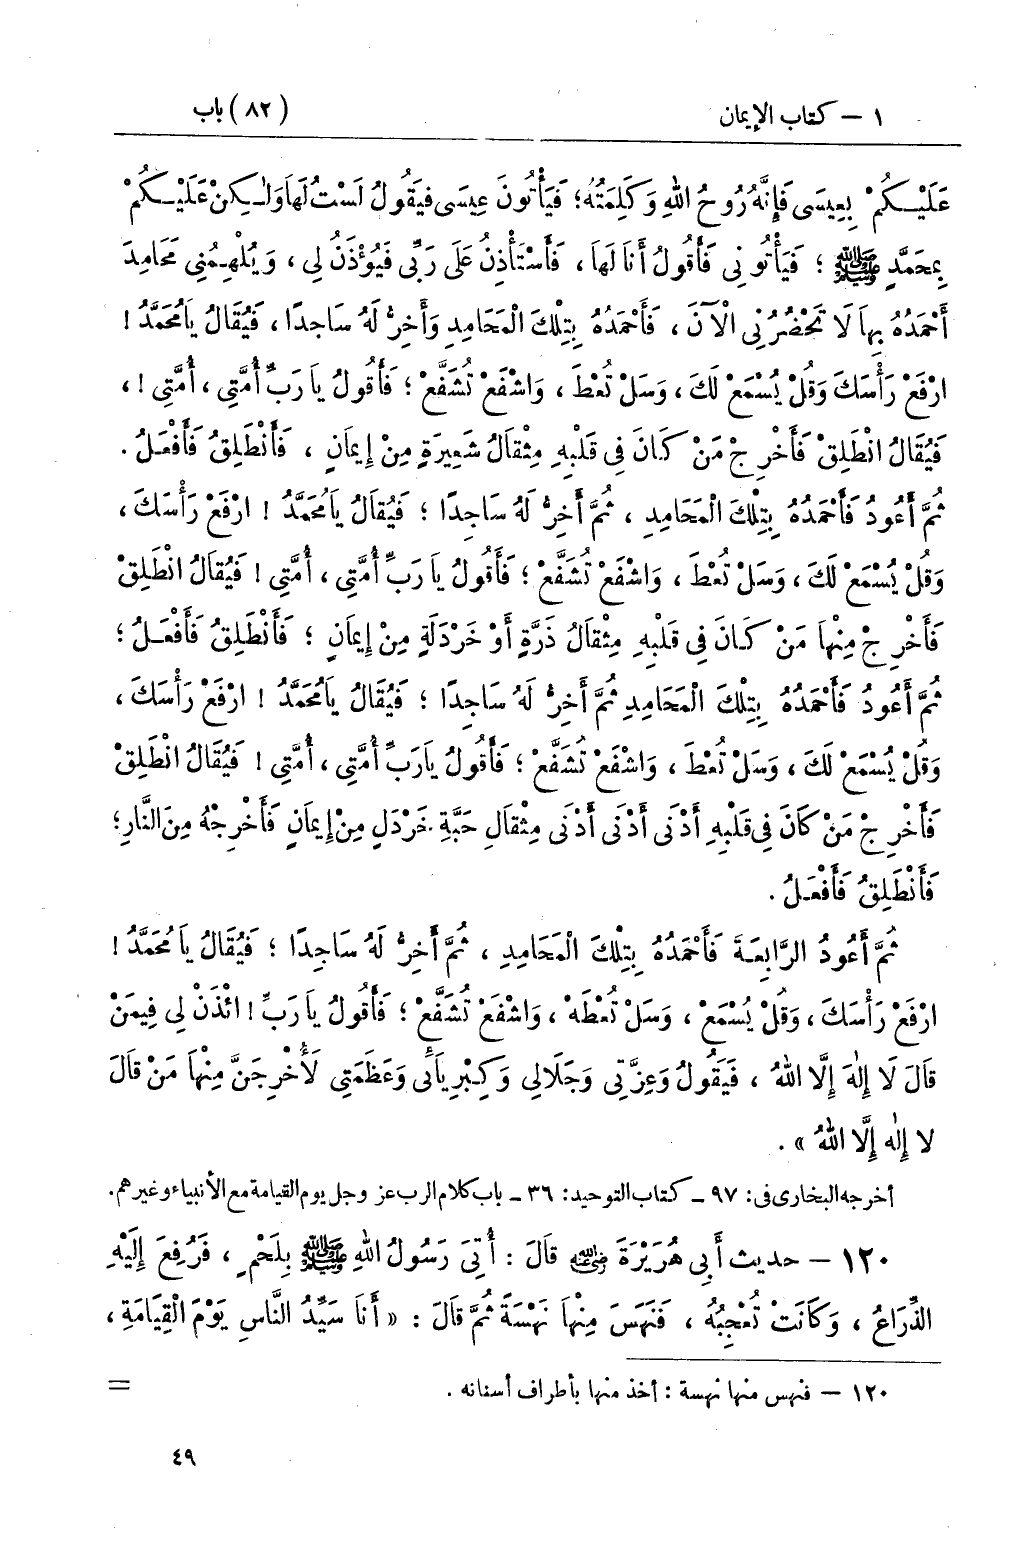 ١ – كتاب الإيمان (٨٢) باب
عَلَيْكُمْ بِعِيسَى فَإِنَّهُ رُوحُ اللهِ وَكَلِمَتُهُ؛ فَيَأْتُونَ عِيسَى فيَقُولُ لَسْتُ لَهَا وَلٰكِنْ عَلَيْكُمْ
بِمحَمَّدٍ ﷺ ؛ فَيَأْتُونِي فَأَقُولُ أَنَا لَهَا ، فَأَسْتَأْذِنُ عَلَى رَبِّى فَيُؤْذَنُ لِي ، وَيُلْهِمُنِي مَحَامِدَ
أَحْمَدُهُ بِهاَ لَا تَحْضُرُنِي الْآنَ ، فَأَحْمَدُهُ بِتِلْكَ الْمَحَامِدِ وَأَخِرُّ لَهُ سَاجِدًا ، فَيُقَالُ يَامُحَمَّدُ !
ارْفَعْ رَأْسَكَ وَقُلْ يُسْمَعْ لَكَ ، وَسَلْ تُعْطَ ، وَاشْفَعْ تُشَفَّعْ ؛ فَأَقُولُ يَا رَبِّ أُمَّتِي ، أُمَّتِي ! ،
فَيُقَالُ انْطَلِقْ فَأَخْرِجْ مَنْ كَانَ فِي قَلْبِهِ مِثْقَالُ شَعِيرَةٍ مِنْ إِيمَانٍ ، فَأَنْطَلِقُ فَأَفْعَلُ .
ثُمَّ أَعُودُ فَأَحْمَدُهُ بِتِلْكَ الْمَحَامِدِ ، ثُمَّ أَخِرُّ لَهُ سَاجِدًا ؛ فَيُقَالُ يَامُحَمَّدُ ! ارْفَعْ رَأْسَكَ ،
وَقُلْ يُسْمَعْ لَكَ ، وَسَلْ تُعْطَ ، وَاشْفَعْ تُشَفَّعْ ؛ فَأَقُولُ يَا رَبِّ أُمَّتِي ، أُمَّتِي ! فَيُقَالُ انْطَلِقْ
فَأَخْرِجْ مِنْهَا مَنْ كَانَ فِي قَلْبِهِ مِثْقَالُ ذَرَّةٍ أَوْ خَرْدَلَةٍ مِنْ إِيمَانٍ ؛ فَأَنْطَلِقُ فَأَفْعَلُ ؛
ثُمَّ أَعُودُ فَأَحْمَدُهُ بِتِلْكَ الْمَحَامِدِ ثُمَّ أَخِرُّ لَهُ سَاجِدًا ؛ فَيُقَالُ يَامُحَمَّدُ ! ارْفَعْ رَأْسَكَ ،
وَقُلْ يُسْمَعْ لَكَ ، وَسَلْ تُعْطَ ، وَاشْفَعْ تُشَفَّعْ ؛ فَأَقُولُ يَارَبِّ أُمَّتِي ، أُمَّتِي ! فَيُقَالُ انْطَلِقْ
فَأَخْرِجْ مَنْ كَانَ فِي قَلْبِهِ أَدْنَى أَدْنَى أَدْنَى مِثْقَالِ حَبَّةِ خَرْدَلٍ مِنْ إِيمَانٍ فَأَخْرِجْهُ مِنَ النَّارِ؛
فَأَنْطَلِقُ فَأَفْعَلُ .
ثُمَّ أَعُودُ الرَّابِعَةَ فَأَحْمَدُهُ بِتِلْكَ الْمَحَامِدِ ، ثُمَّ أَخِرُّ لَهُ سَاجِدًا ؛ فَيُقَالُ يَامُحَمَّدُ !
ارْفَعْ رَأْسَكَ ، وَقُلْ يُسْمَعْ ، وَسَلْ تُعْطَهْ ، وَاشْفَعْ تُشَفَّعْ ؛ فَأَقُولُ يَا رَبِّ ! ائْذَنْ لِي فِيمَنْ
قَالَ لَا إِلٰهَ إِلَّا اللهُ ، فَيَقُولُ وَعِزَّتِي وَجَلَالِي وَكِبْرِيَائِي وَعَظَمَتِي لَأُخْرِجَنَّ مِنْهَا مَنْ قَالَ
لا إِلٰه إِلَّا اللهُ » .
أخرجه البخارى فى : ٩٧ – كتاب التوحيد : ٣٦ – باب كلام الرب عز وجل يوم القيامة مع الأنبياء وغيرهم.
١٢٠ – حديث أَبِي هُرَيْرَةَ رضي الله عنه قَالَ : أُتِيَ رَسُولُ اللهِ ﷺ بِلَحْمٍ ، فَرُفِعَ إِلَيْهِ
الذِّرَاعُ ، وَكَانَتْ تُعْجِبُهُ ، فَنَهَسَ مِنْهَا نَهْسَةً ثُمَّ قَالَ : « أَنَا سَيِّدُ النَّاسِ يَوْمَ الْقِيَامَةِ ،
١٢٠ – فنهس منها نهسة : أخذ منها بأطراف أسنانه . =
٤٩